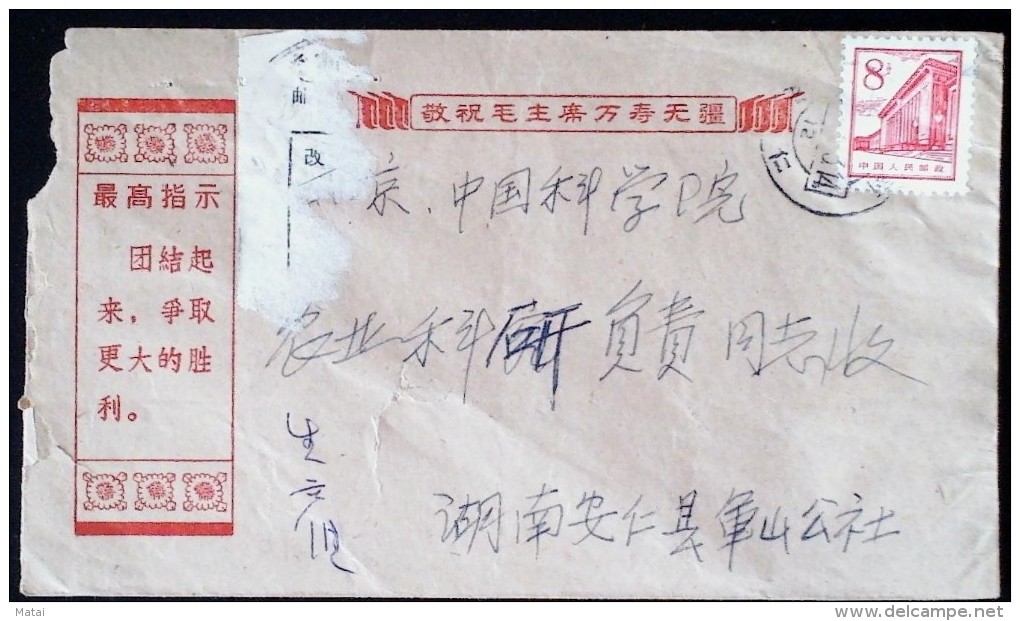 敬祝毛主席万寿无疆
8
中国人民邮政
改
仁
最高指示
团結起
来，爭取
更大的胜
利。
京、中国科学院
农业科研負責同志收
湖南安仁县軍山公社
Matai
delcampe.net